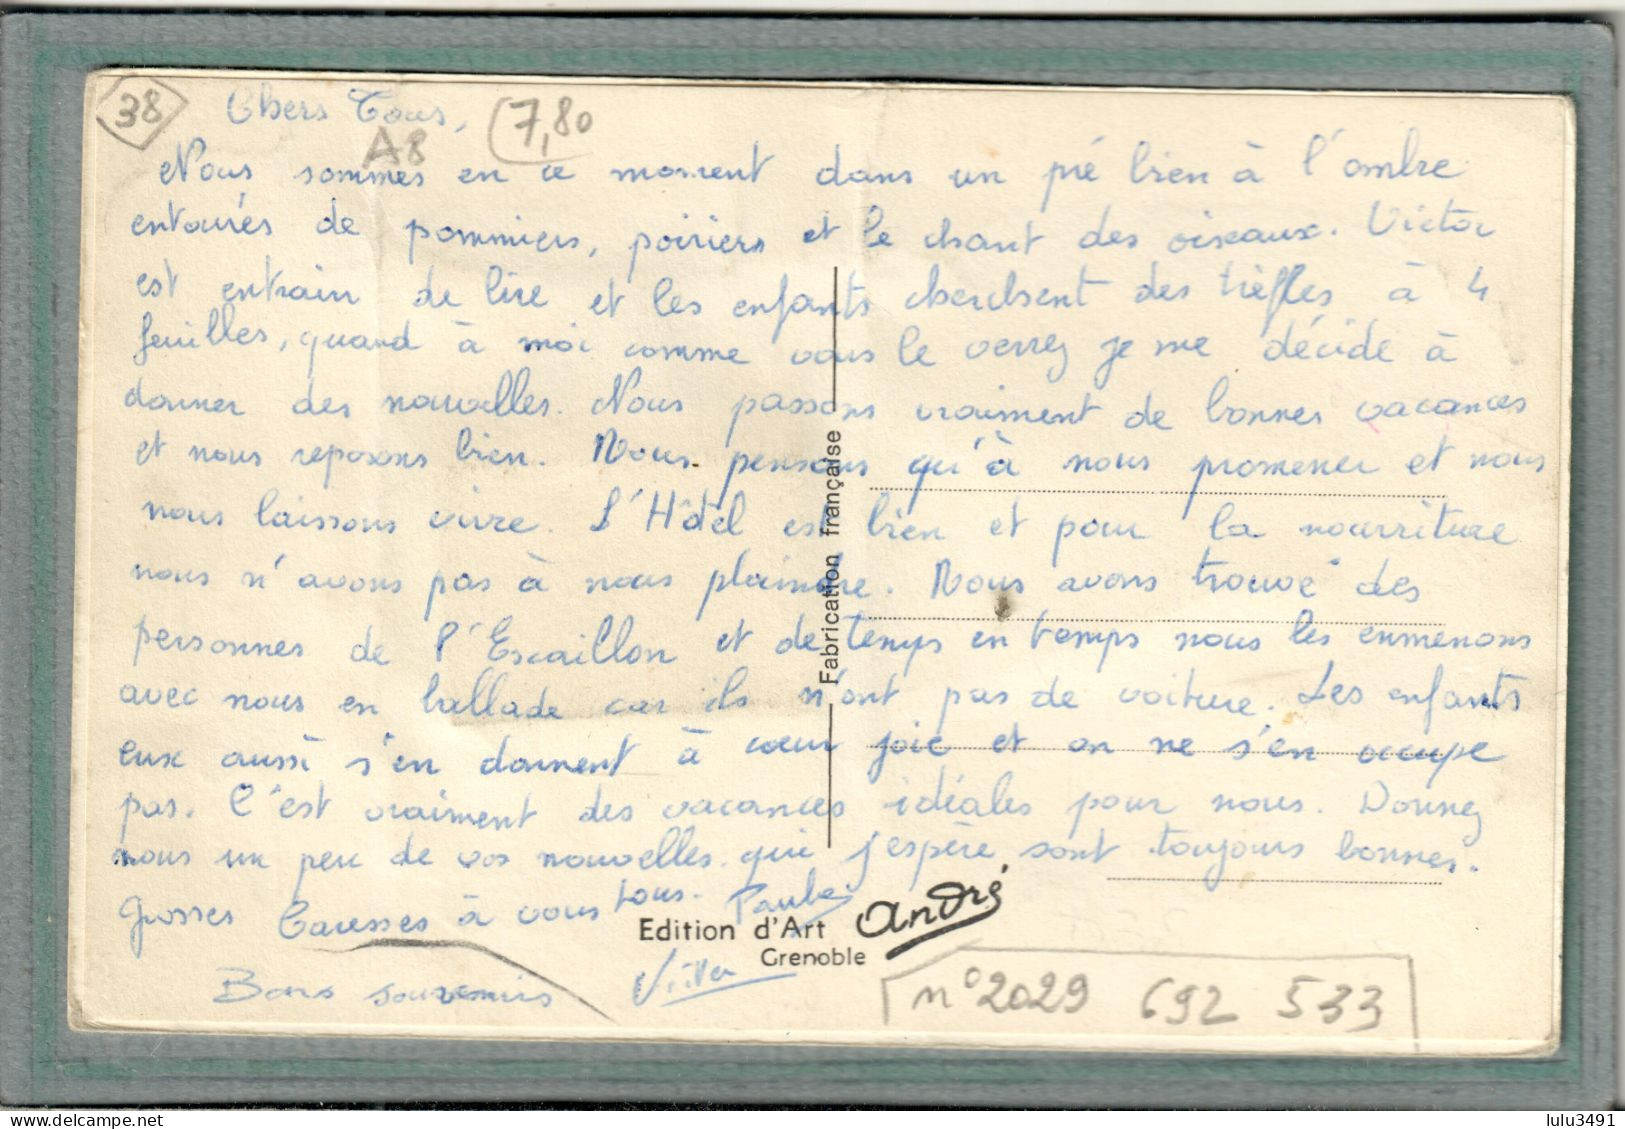 38
Chers Tous,
7,80
A8
Nous sommes en ce moment dans un pré bien à l'ombre
entourés de pommiers, poiriers et le chant des oiseaux. Victor
est entrain de lire et les enfants cherchent des trèfles à 4
feuilles, quand à moi comme vous le verrez je me décide à
donner des nouvelles. Nous passons vraiment de bonnes vacances
et nous reposons bien. Nous pensons qu'à nous promener et nous
nous laissons vivre. L'Hôtel est bien et pour la nourriture
nous n'avons pas à nous plaindre. Nous avons trouvé des
personnes de l'Escaillon et de temps en temps nous les emmenons
avec nous en ballade car ils n'ont pas de voiture. Les enfants
eux aussi s'en donnent à cœur joie et on ne s'en occupe
pas. C'est vraiment des vacances idéales pour nous. Donnez
nous un peu de vos nouvelles qui j'espère sont toujours bonnes.
Grosses Caresses à vous tous.
Bons souvenirs
Fabrication française
Edition d'Art André
Grenoble
n°2029 692 533
lulu3491